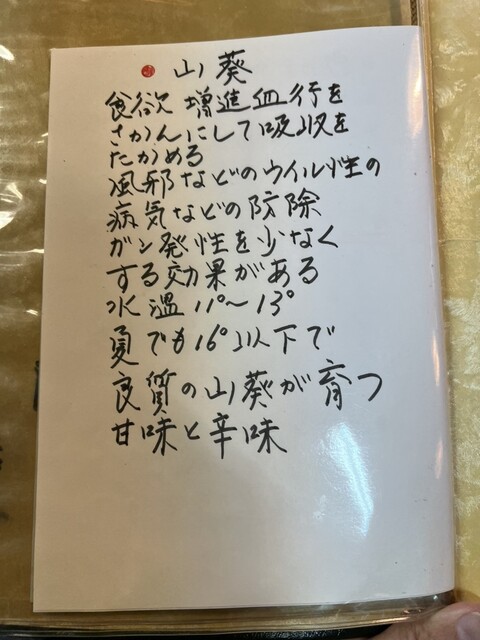 山葵
食欲増進血行を
さかんにして吸収を
たかめる
風邪などのウイルス性の
病気などの防除
ガン発性を少なく
する効果がある
水温11°〜13°
夏でも16°以下で
良質の山葵が育つ
甘味と辛味